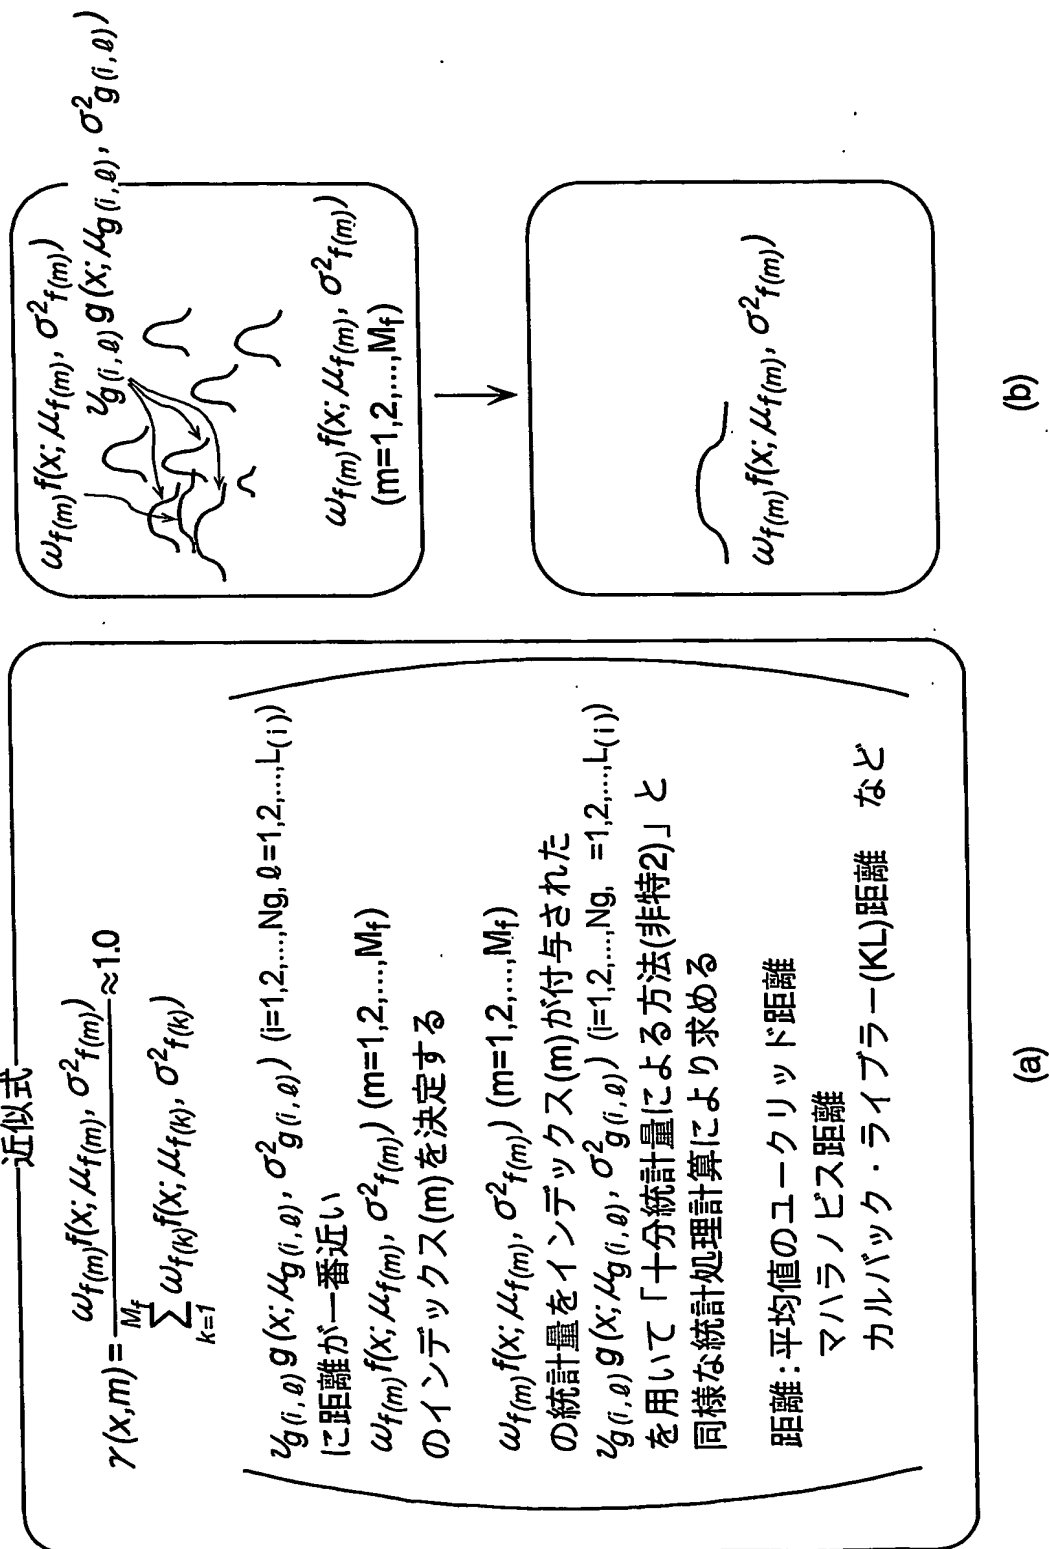 近似式
γ(x,m)= ω_{f(m)} f(x; μ_{f(m)}, σ²_{f(m)}) / Σ_{k=1}^{M_f} ω_{f(k)} f(x; μ_{f(k)}, σ²_{f(k)}) ≈1.0
υ_{g(i,ℓ)} g(x; μ_{g(i,ℓ)}, σ²_{g(i,ℓ)}) (i=1,2,...,Ng, ℓ=1,2,...,L_{(i)})
に距離が一番近い
ω_{f(m)} f(x; μ_{f(m)}, σ²_{f(m)}) (m=1,2,...,M_f)
のインデックス(m)を決定する
ω_{f(m)} f(x; μ_{f(m)}, σ²_{f(m)}) (m=1,2,...,M_f)
の統計量をインデックス(m)が付与された
υ_{g(i,ℓ)} g(x; μ_{g(i,ℓ)}, σ²_{g(i,ℓ)}) (i=1,2,...,Ng, =1,2,...,L_{(i)})
を用いて「十分統計量による方法(非特2)」と
同様な統計処理計算により求める
距離：平均値のユークリッド距離
マハラノビス距離
カルバック・ライブラー(KL)距離 など
(a)
ω_{f(m)} f(x; μ_{f(m)}, σ²_{f(m)})
υ_{g(i,ℓ)} g(x; μ_{g(i,ℓ)}, σ²_{g(i,ℓ)})
ω_{f(m)} f(x; μ_{f(m)}, σ²_{f(m)})
(m=1,2,...,M_f)
ω_{f(m)} f(x; μ_{f(m)}, σ²_{f(m)})
(b)